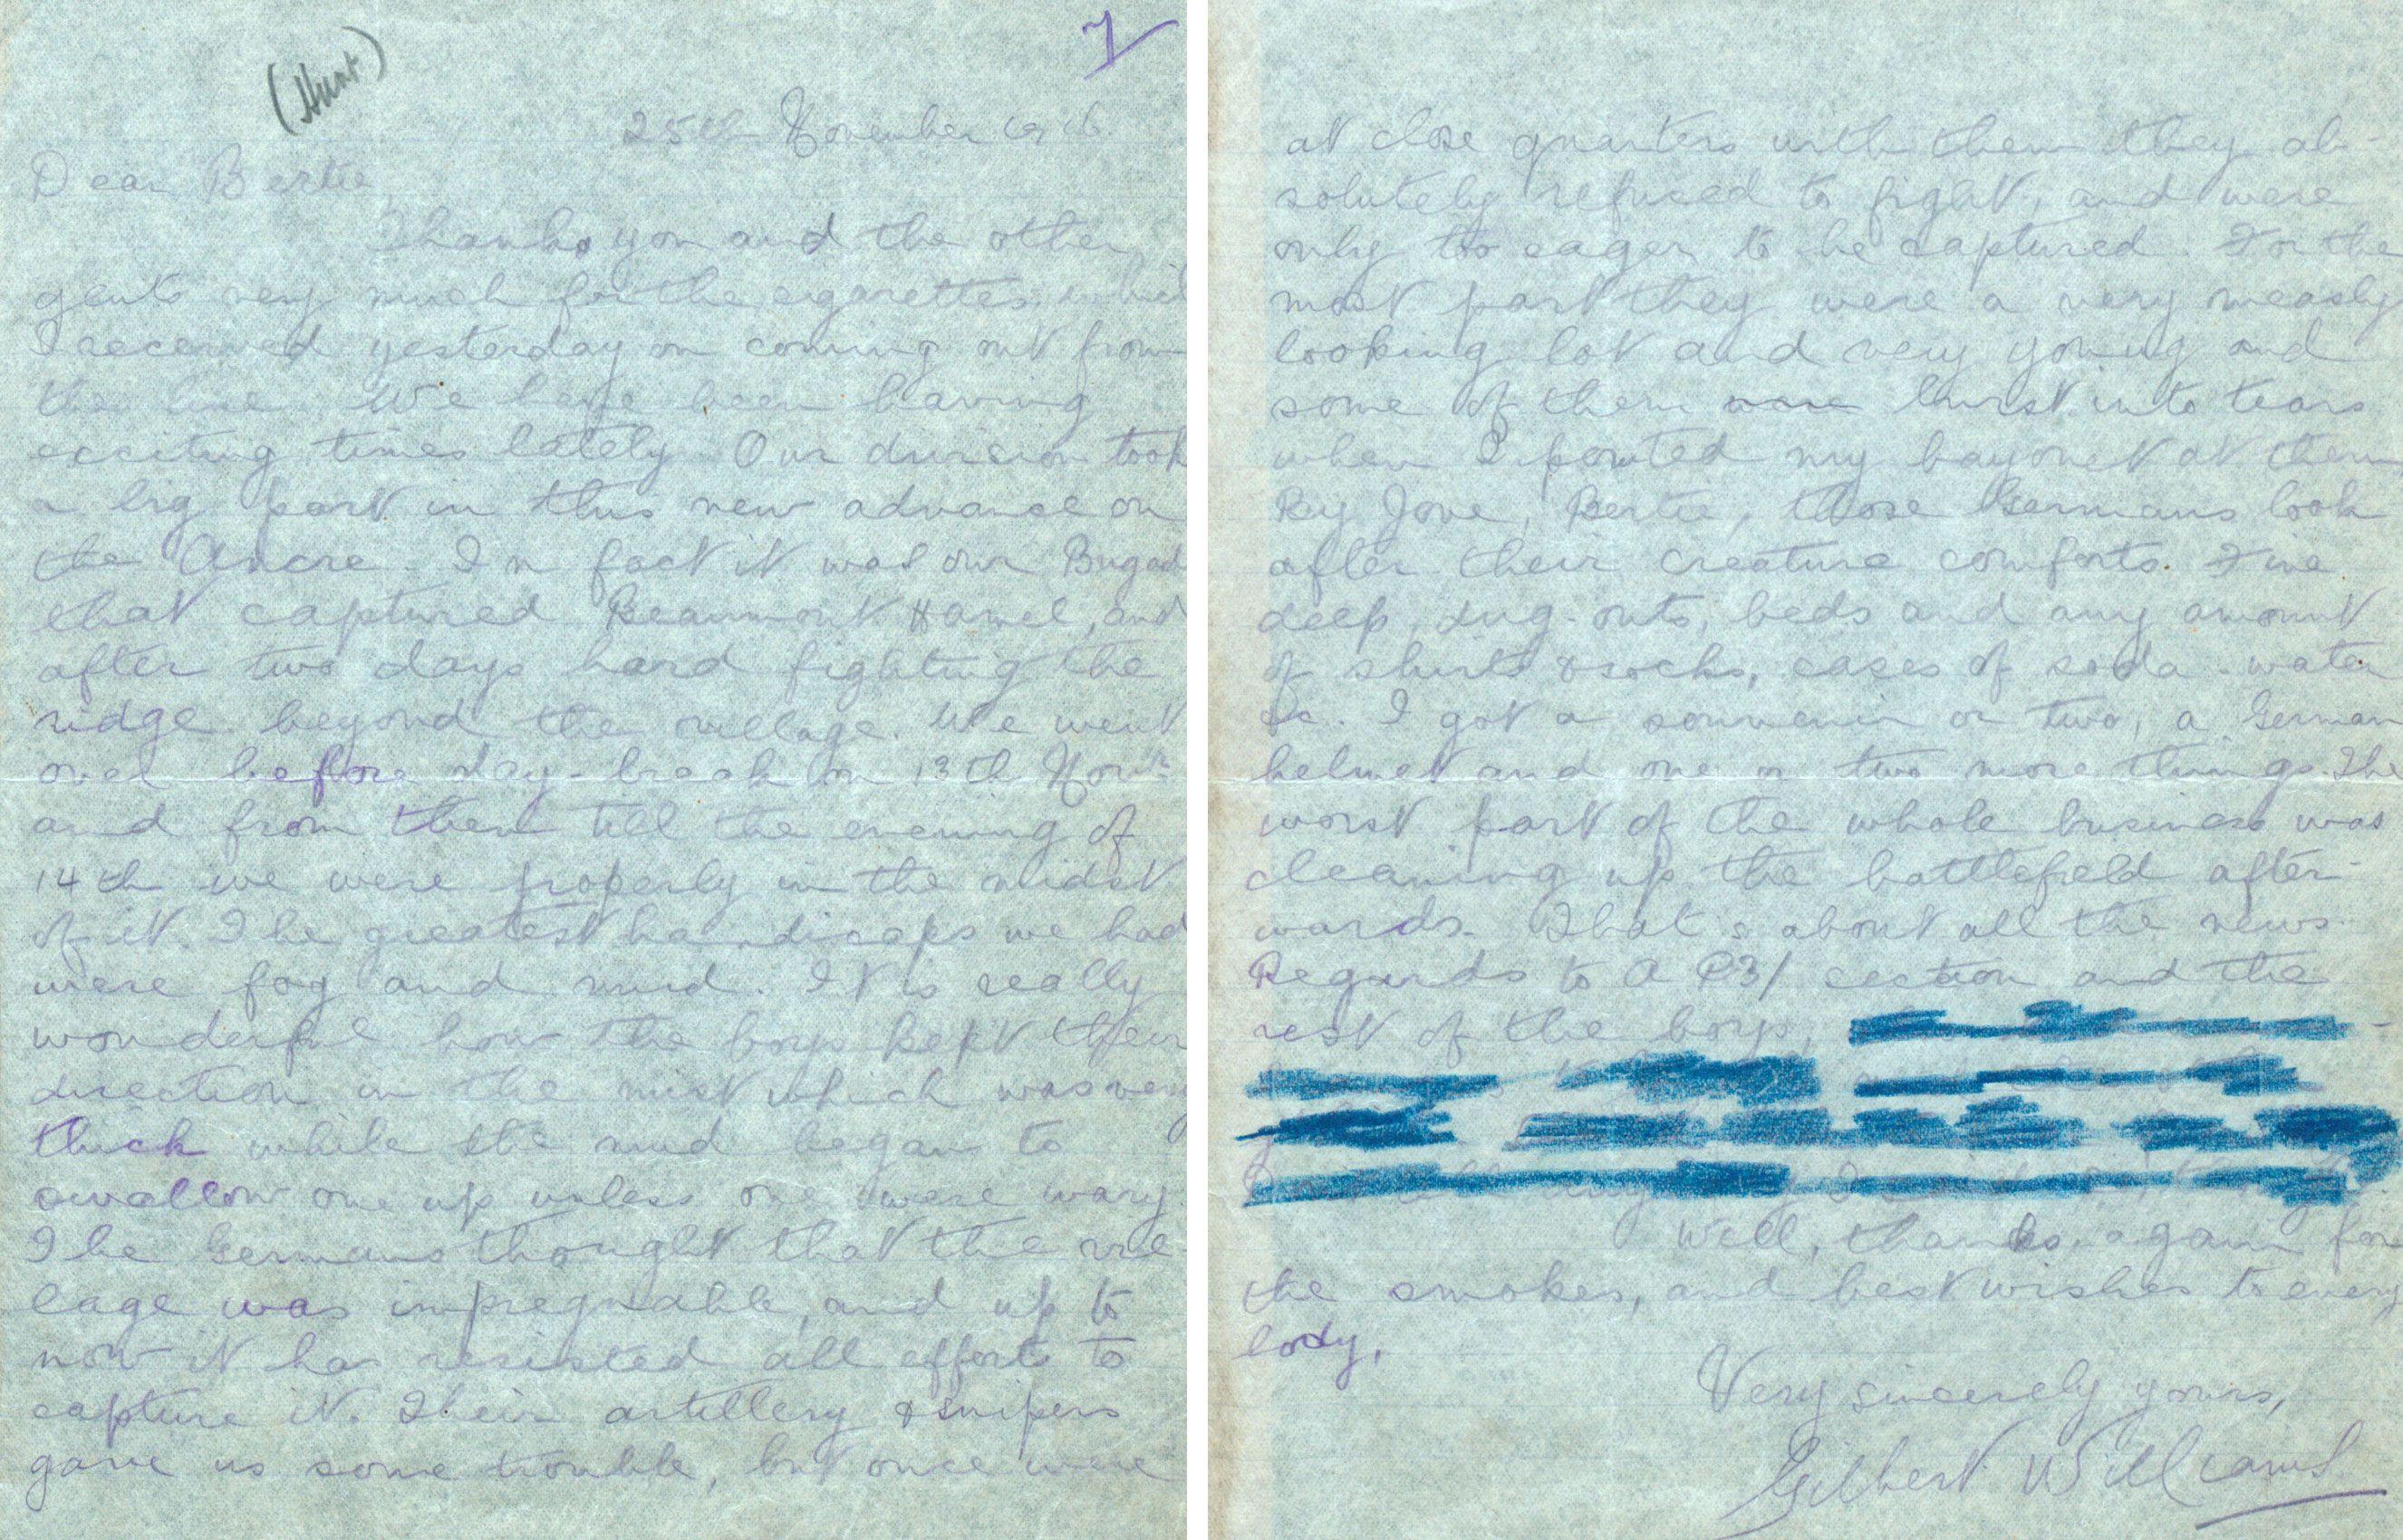 7
(Hunt)
25th November 1916.
Dear Bertie,
Thanks you and the other
gents very much for the cigarettes, which
I received yesterday on coming out from
the line. We have been having
exciting times lately. Our division took
a big part in this new advance on
the Ancre. In fact it was our Brigade
that captured Beaumont Hamel, and
after two days hard fighting the
ridge beyond the village. We went
over before day-break on 13th Novr
and from then till the evening of
14th we were properly in the midst
of it. The greatest handicaps we had
were fog and mud. It is really
wonderful how the boys kept their
direction in the mist which was very
thick while the mud began to
swallow one up unless one were wary.
The Germans thought that the vil-
lage was impregnable, and up to
now it has resisted all efforts to
capture it. Their artillery & snipers
gave us some trouble, but once were
at close quarters with them they ab-
solutely refused to fight, and were
only too eager to be captured. For the
most part they were a very measly
looking lot and very young and
some of them burst into tears
when I pointed my bayonet at them
By Jove, Bertie, those Germans look
after their creature comforts. Fine
deep dug-outs, beds and any amount
of shirts & socks, cases of soda-water
&c. I got a souvenir or two, a German
helmet and one or two more things. The
worst part of the whole business was
cleaning up the battlefield after-
wards. That's about all the news.
Regards to A section and the
rest of the boys,
Well, thanks again for
the smokes, and best wishes to every
body,
Very sincerely yours,
Gilbert Williams